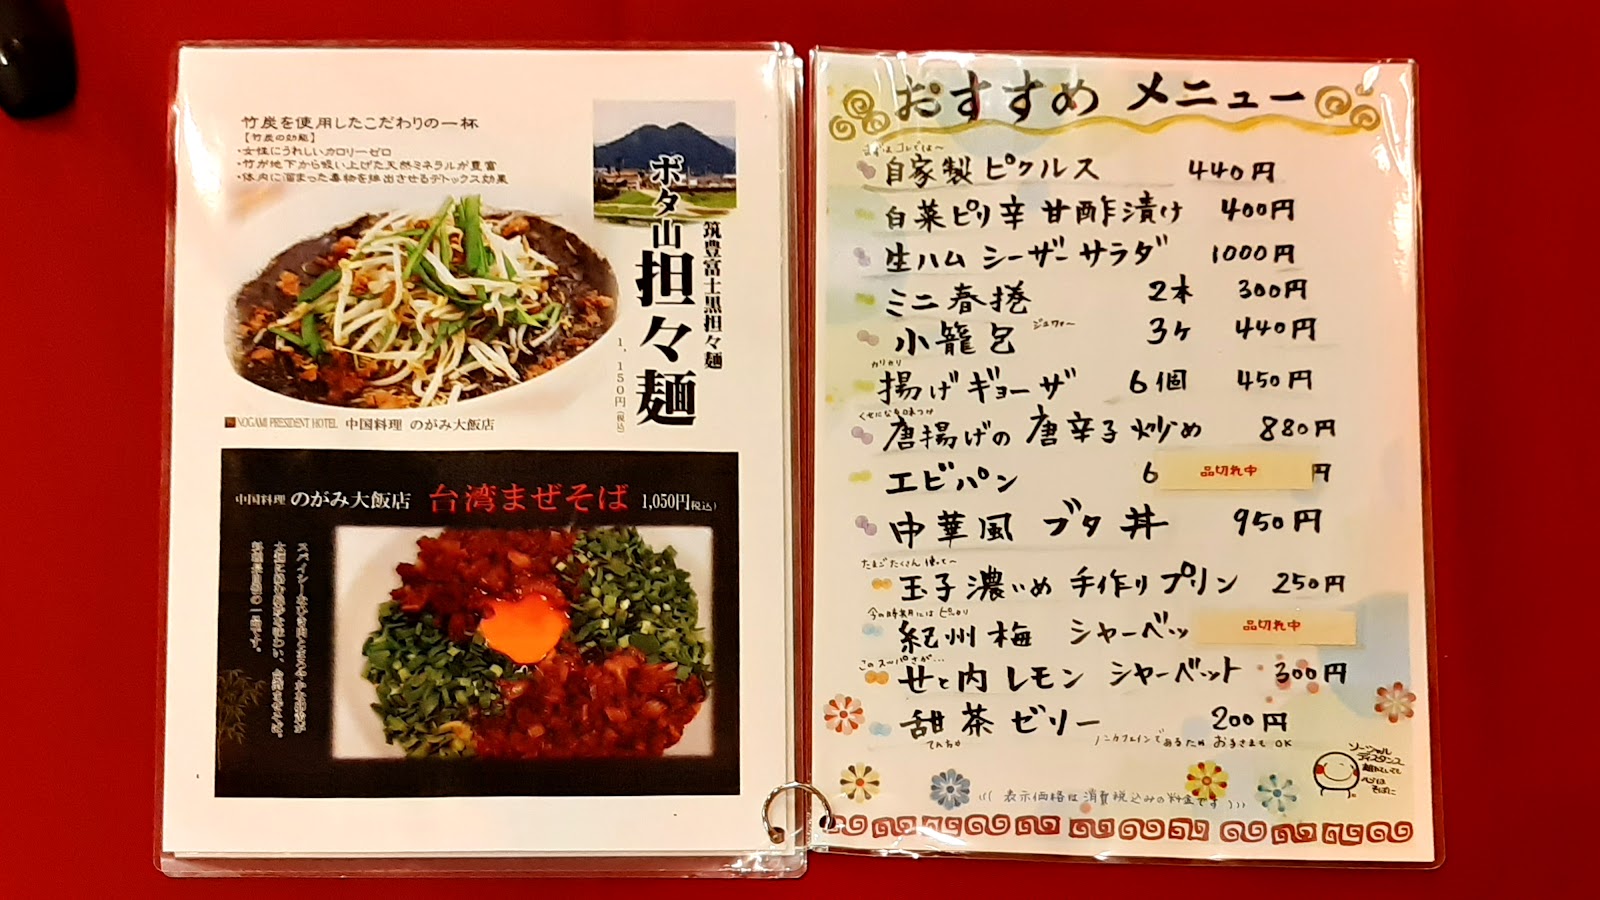 竹炭を使用したこだわりの一杯
【竹炭の効能】
・女性にうれしいカロリーゼロ
・竹が地下から吸い上げた天然ミネラルが豊富
・体内に溜まった毒物を排出させるデトックス効果
筑豊富士黒担々麺
ボタ山担々麺
1,150円(税込)
NOGAMI PRESIDENT HOTEL 中国料理 のがみ大飯店
中国料理 のがみ大飯店 台湾まぜそば 1,050円(税込)
料理長自慢の一品です。
おすすめ メニュー
まずはコレでは〜
自家製ピクルス 440円
白菜ピリ辛甘酢漬け 400円
生ハム シーザーサラダ 1000円
ミニ春捲 2本 300円
小籠包 ジュワァ〜 3ヶ 440円
カリカリ
揚げギョーザ 6個 450円
くせになる味つけ
唐揚げの唐辛子炒め 880円
エビパン 6 品切れ中 円
中華風 ブタ丼 950円
たまごたくさん使って〜
玉子濃いめ 手作りプリン 250円
今の時期にはピッタリ
紀州梅 シャーベッ 品切れ中
このスッパさが…
せと内レモン シャーベット 300円
甜茶ゼリー 200円
てんちゃ ノンカフェインであるため お子さまも OK
ソーシャル
ディスタンス
離れていても
心は
そばに
((( 表示価格は消費税込みの料金です )))